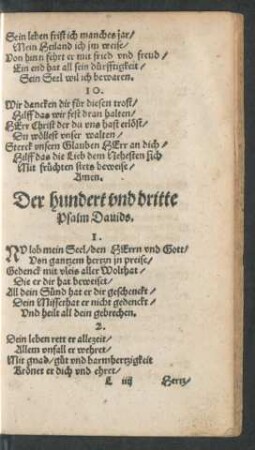 Sein leben frist ich manches jar/
Mein Heiland ich jm weise/
Von hinn fehrt er mit fried vnd freud/
Ein end hat all sein dürfftigkeit/
Sein Seel wil ich bewaren.
10.
Wir dancken dir für diesen trost/
Hilff das wir fest dran halten/
HErr Christ der du vns hast erlöst/
Du wöllest vnser walten/
Sterck vnsern Glauben HErr an dich/
Hilff das die Lieb dem Nehesten sich
Mit früchten stets beweise/
Amen.
Der hundert vnd dritte
Psalm Dauids.
1.
NV lob mein Seel/den HErrn vnd Gott/
Von gantzem hertzn jn preise/
Gedenck mit vleis aller Wolthat/
Die er dir hat beweiset/
All dein Sünd hat er dir geschenckt/
Dein Missethat er nicht gedenckt/
Vnd heilt all dein gebrechen.
2.
Dein leben rett er allezeit/
Allem vnfall er wehret/
Mit gnad/güt vnd barmhertzigkeit
Krönet er dich vnd ehret/
L iiij Hertz/